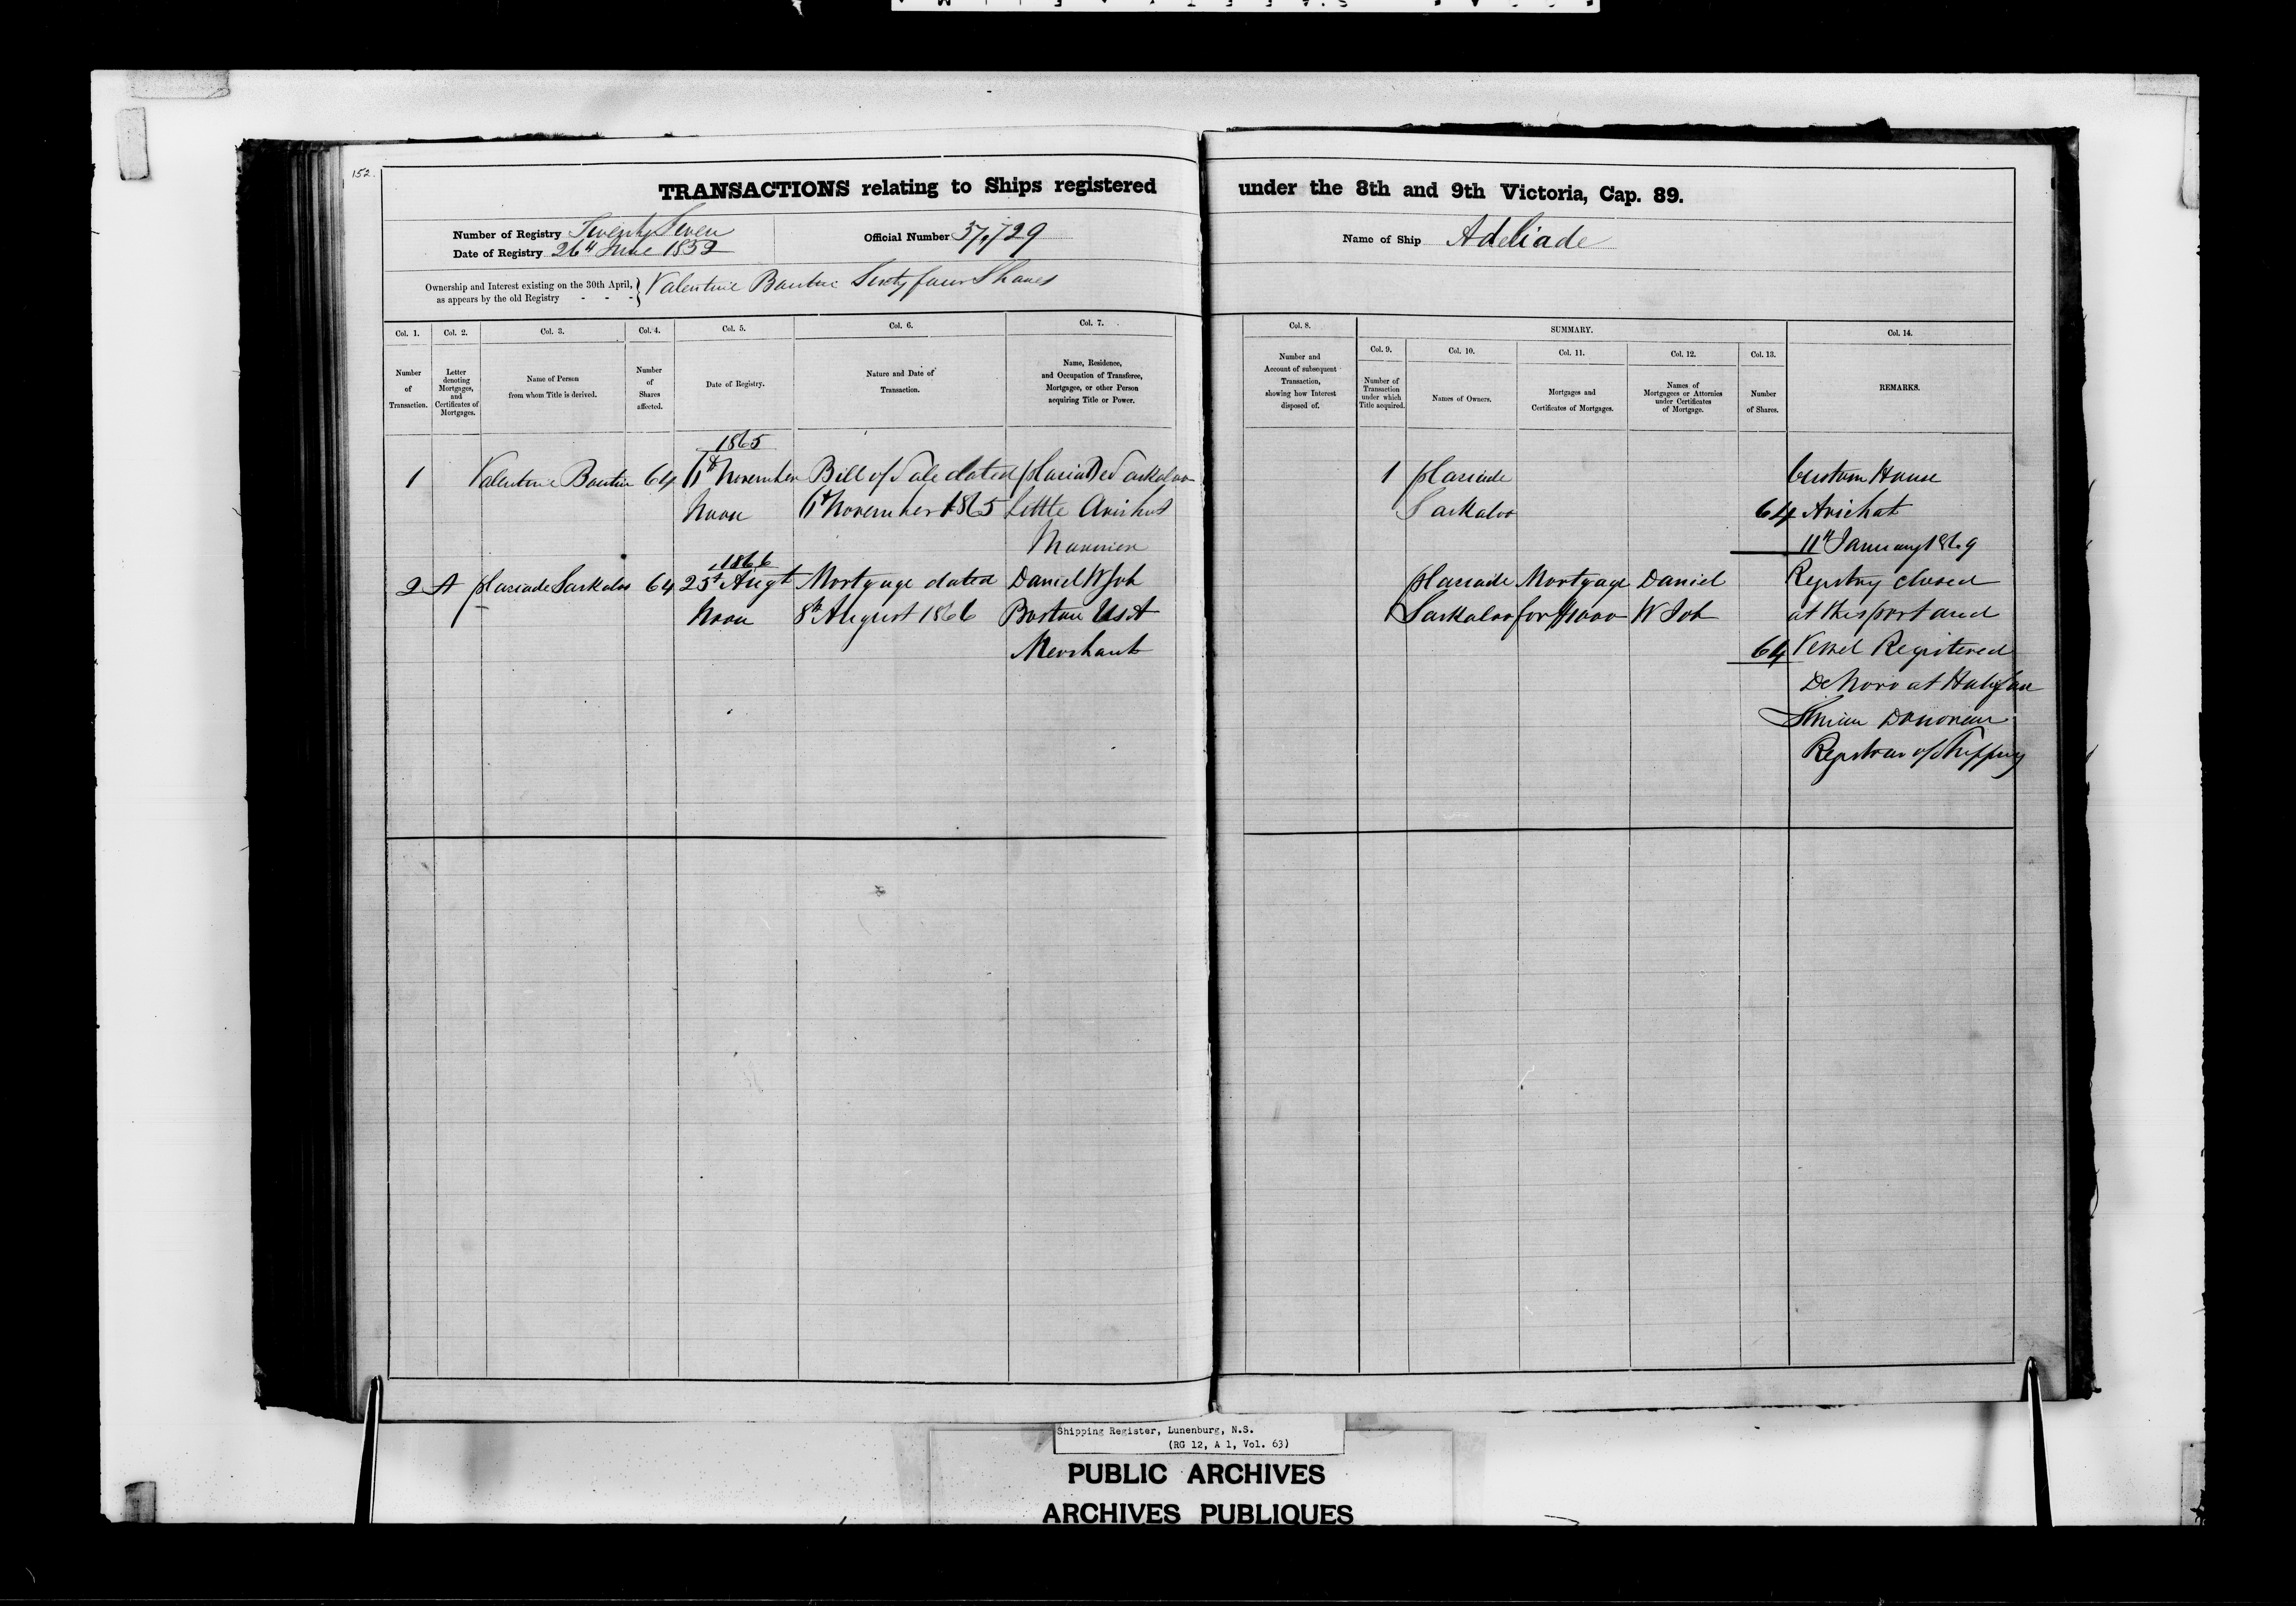 152.
TRANSACTIONS relating to Ships registered under the 8th and 9th Victoria, Cap. 89.
Number of Registry Twenty Seven
Date of Registry 26th June 1852
Official Number 37,729
Name of Ship Adeliade
Ownership and Interest existing on the 30th April, as appears by the old Registry - - - } Valentine Boutin Sixty four Shares
Col. 1. Number of Transaction.
Col. 2. Letter denoting Mortgages, and Certificates of Mortgages.
Col. 3. Name of Person from whom Title is derived.
Col. 4. Number of Shares affected.
Col. 5. Date of Registry.
Col. 6. Nature and Date of Transaction.
Col. 7. Name, Residence, and Occupation of Transferee, Mortgagee, or other Person acquiring Title or Power.
Col. 8. Number and Account of subsequent Transaction, showing how Interest disposed of.
SUMMARY.
Col. 9. Number of Transaction under which Title acquired.
Col. 10. Names of Owners.
Col. 11. Mortgages and Certificates of Mortgages.
Col. 12. Names of Mortgagees or Attornies under Certificates of Mortgage.
Col. 13. Number of Shares.
Col. 14. REMARKS.
1865
1 Valentine Boutin 64 November Bill of Sale dated
Noon November 1865 Little Arichat
Mariner
1866
2 A Placiade 64 25th Augt Mortgage dated Daniel W Job
Noon 8th August 1866 Boston US A
Merchant
1 Placiade
64
Placiade Mortgage Daniel
for $1000 W Job
64
Custom House
Arichat
11th January 1869
Registry closed
at this port and
Vessel Registered
De Novo at Halifax
Registrar of Shipping
Shipping Register, Lunenburg, N.S.
(RG 12, A 1, Vol. 63)
PUBLIC ARCHIVES
ARCHIVES PUBLIQUES